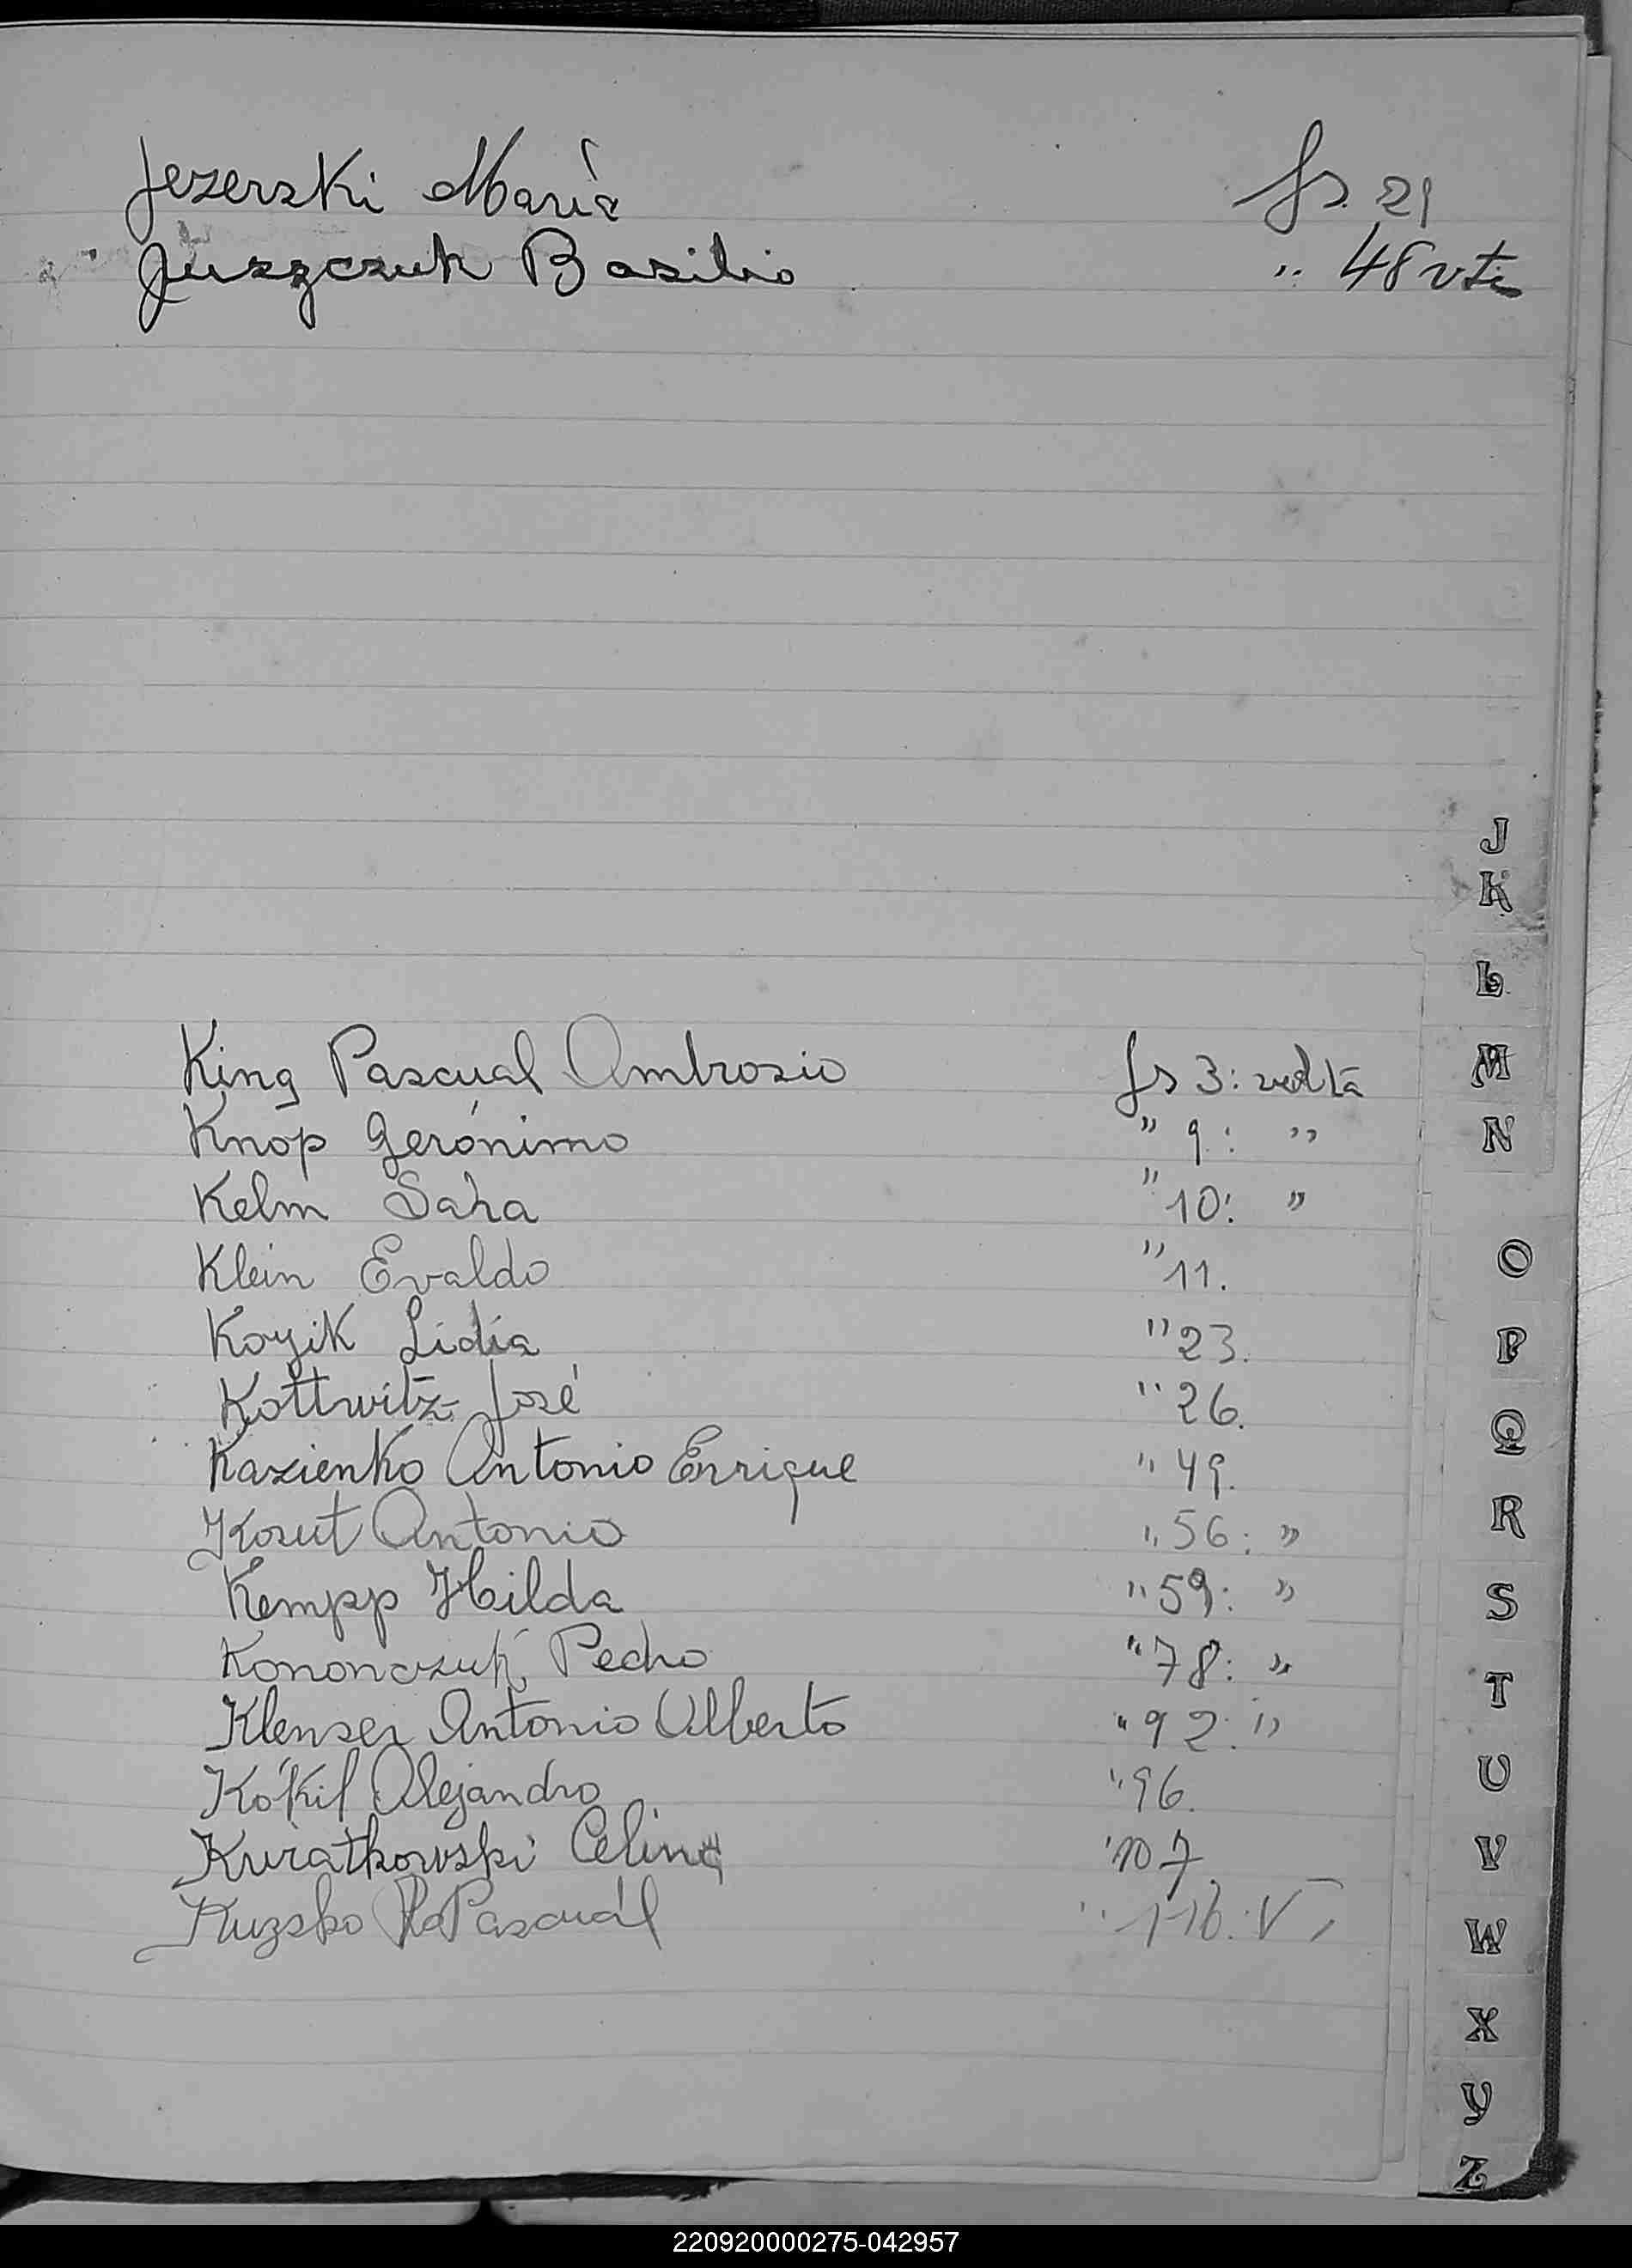 Jezerski Maria fs. 21
Juszczuk Basilio " 48 vta
J
K
L
King Pascual Ambrosio fs 3: vuelta
M
Knop Gerónimo " 9: "
N
Kelm Sara " 10: "
Klein Evaldo " 11.
O
Kozik Lidia " 23.
P
Kottwitz José " 26.
Q
Kazienko Antonio Enrique " 49.
Kosut Antonio " 56: "
R
Kempp Hilda " 59: "
S
Kononczuk Pedro " 78: "
T
Klenser Antonio Alberto " 92: "
Kókil Alejandro " 96.
U
Kwiatkowski Celina " 107
V
Kuzsko Pascuál " 116: V
W
X
Y
Z
220920000275-042957